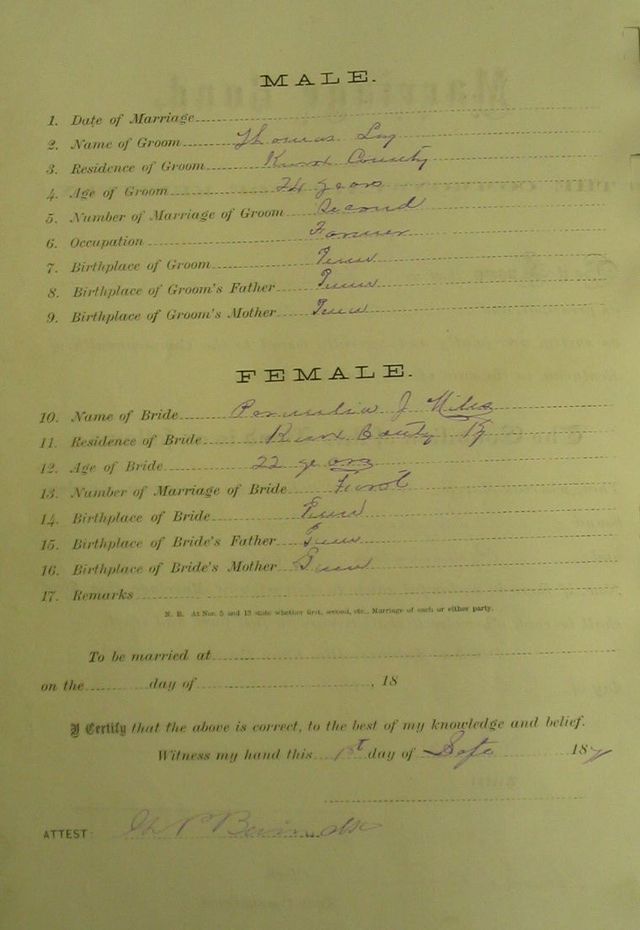 MALE.
1. Date of Marriage
2. Name of Groom Thomas Lay
3. Residence of Groom Knox County
4. Age of Groom 24 years
5. Number of Marriage of Groom Second
6. Occupation Farmer
7. Birthplace of Groom Tenn
8. Birthplace of Groom's Father Tenn
9. Birthplace of Groom's Mother Tenn
FEMALE.
10. Name of Bride J
11. Residence of Bride Knox Couty Ky
12. Age of Bride 22 years
13. Number of Marriage of Bride First
14. Birthplace of Bride Tenn
15. Birthplace of Bride's Father Tenn
16. Birthplace of Bride's Mother Tenn
17. Remarks
N. B. At Nos. 5 and 13 state whether first, second, etc., Marriage of each or either party.
To be married at
on the day of , 18
I Certify that the above is correct, to the best of my knowledge and belief.
Witness my hand this 1st day of 187
ATTEST: